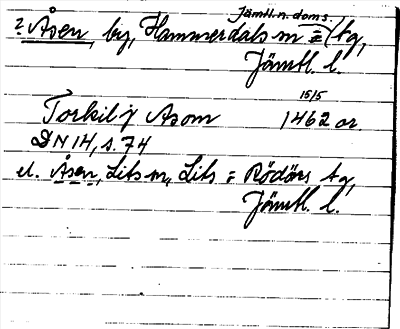 Jämtl. n. doms.
? Åsen, by, Hammerdals sn = (tg,
Jämtl. l.
15/5
Torkil j Asom 1462 or.
DN 14, s. 74
el. Åsen, Lits sn, Lits = Rödöns tg,
Jämtl. l.